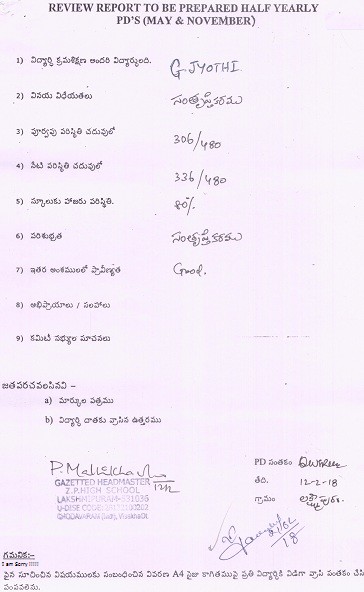 REVIEW REPORT TO BE PREPARED HALF YEARLY
PD'S (MAY & NOVEMBER)
1) విద్యార్థి క్రమశిక్షణ అందరి విద్యార్థులది. G JYOTHI
2) వినయ విధేయతలు సంతృప్తికరము
3) పూర్వపు పరిస్థితి చదువులో 306/480
4) నేటి పరిస్థితి చదువులో 336/480
5) స్కూలుకు హాజరు పరిస్థితి. 80%
6) పరిశుభ్రత సంతృప్తికరము
7) ఇతర అంశములలో ప్రావీణ్యత Good.
8) అభిప్రాయాలు / సలహాలు
9) కమిటి సభ్యుల సూచనలు
జతపరచవలసినవి –
a) మార్కుల పత్రము
b) విద్యార్థి దాతకు వ్రాసిన ఉత్తరము
PD సంతకం
GAZETTED HEADMASTER 12/2
Z.P.HIGH SCHOOL
LAKSHMIPURAM-531036
U-DISE CODE:
తేది. 12-2-18
గ్రామం
గమనిక:-
I am Sorry !!!!!
పైన సూచించిన విషయములకు సంబంధించిన వివరణ A4 సైజు కాగితముపై ప్రతి విద్యార్థికి విడిగా వ్రాసి సంతకం చేసి
పంపవలెను.